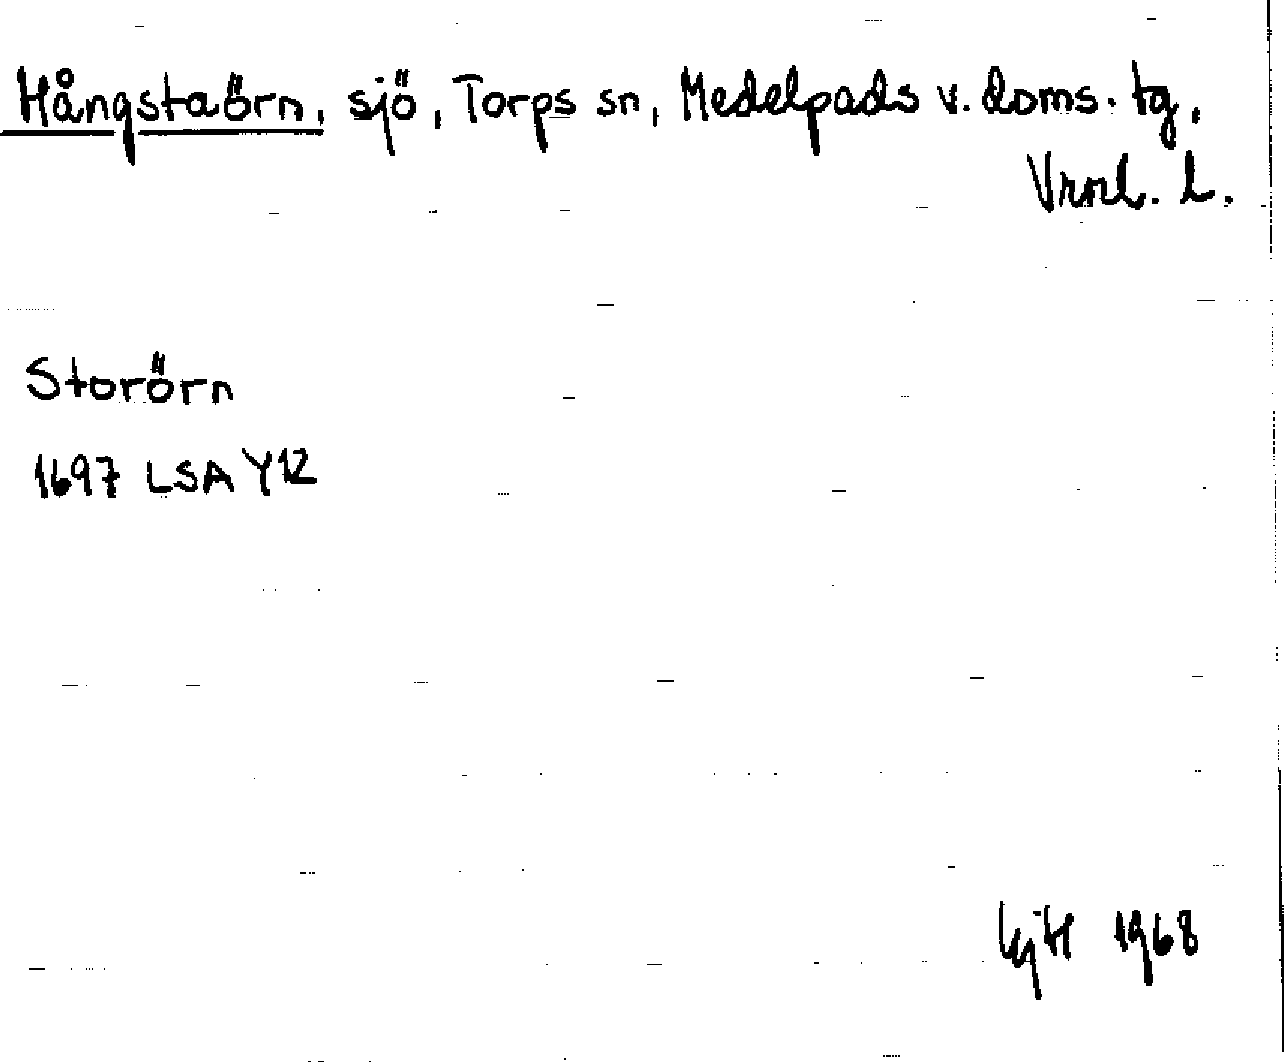 Hångstaörn, sjö, Torps sn, Medelpads v. doms. tg,
Vrnl. L.
Storörn
1697 LSA Y12
1968